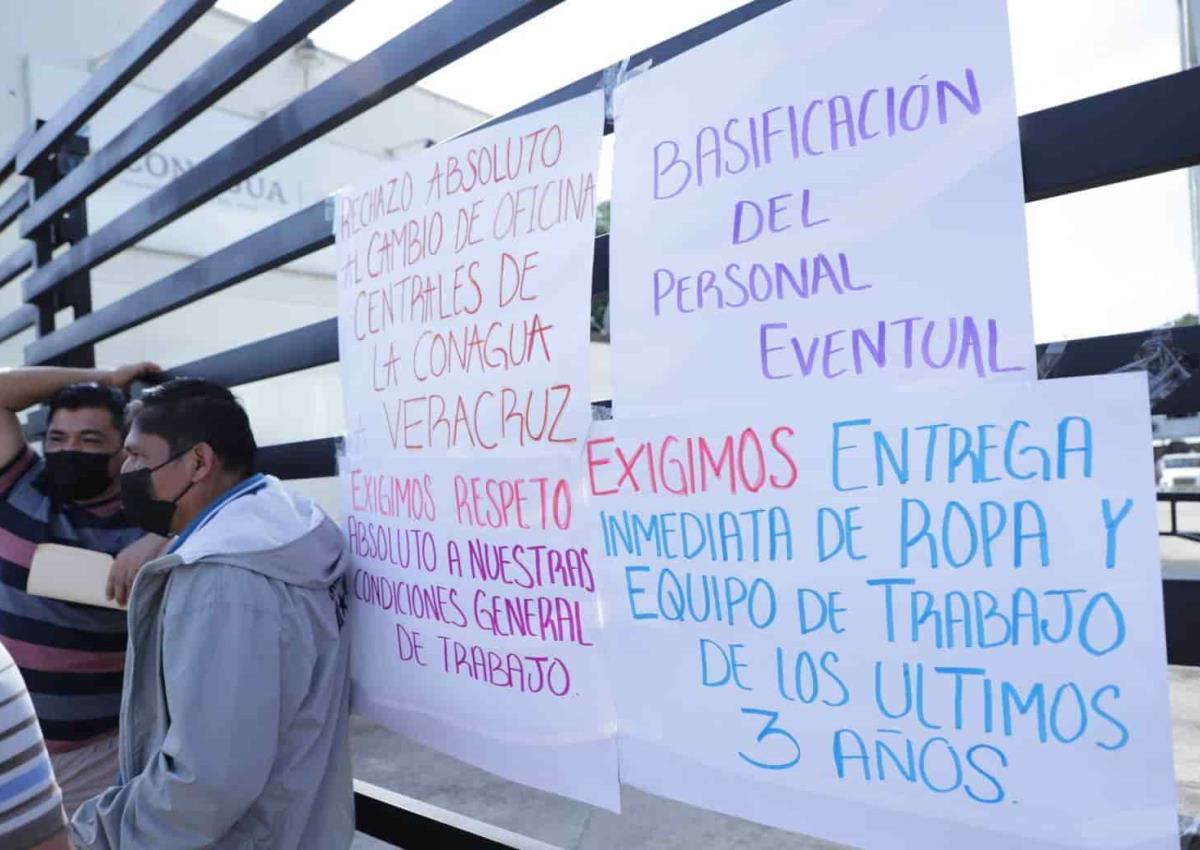 CONAGUA
RECHAZO ABSOLUTO
AL CAMBIO DE OFICINA
CENTRALES DE
LA CONAGUA
VERACRUZ
EXIGIMOS RESPETO
ABSOLUTO A NUESTRAS
CONDICIONES GENERAL
DE TRABAJO.
BASIFICACIÓN
DEL
PERSONAL
EVENTUAL
EXIGIMOS ENTREGA
INMEDIATA DE ROPA Y
EQUIPO DE TRABAJO
DE LOS ULTIMOS
3 AÑOS.